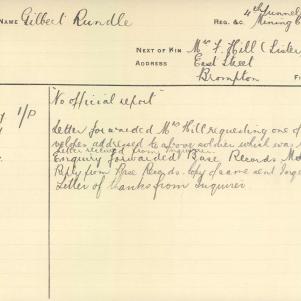 NAME Gilbert Rundle REG. &C.
Mining
NEXT OF KIN Mrs F. Hill (Sister
ADDRESS East Street
Brompton
1/P No official report
Letter forwarded Mrs Hill requesting one of
addressed to above soldier which was
Letter received from Inquirer
Enquiry forwarded Base Records
Reply from Base Records. Copy of same sent
Letter of thanks from Inquirer